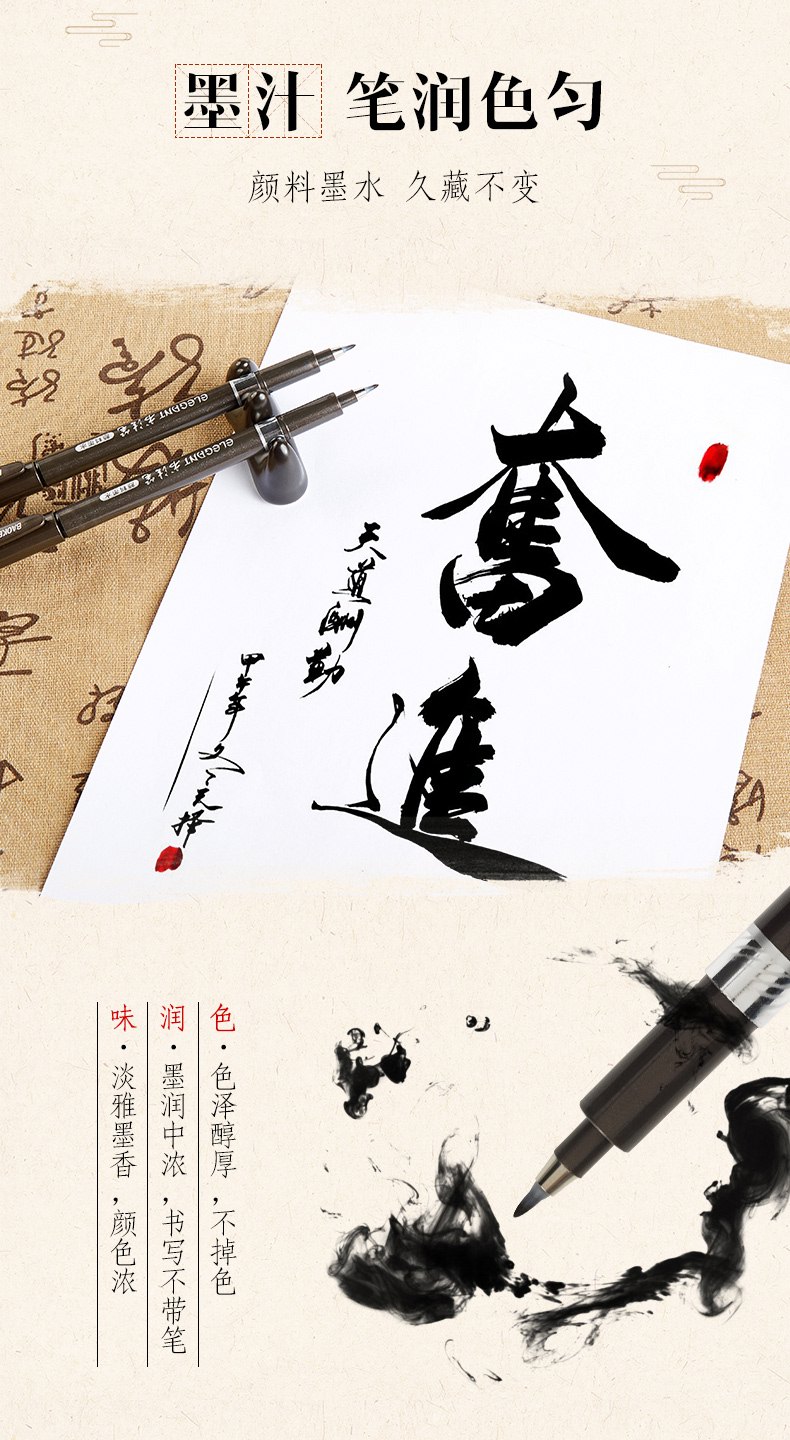 墨汁 笔润色匀
颜料墨水 久藏不变
ELEGANT 书法笔
ELEGANT 书法笔
BAOKE
奮進
天道酬勤
甲午年
色·色泽醇厚,不掉色
润·墨润中浓,书写不带笔
味·淡雅墨香,颜色浓